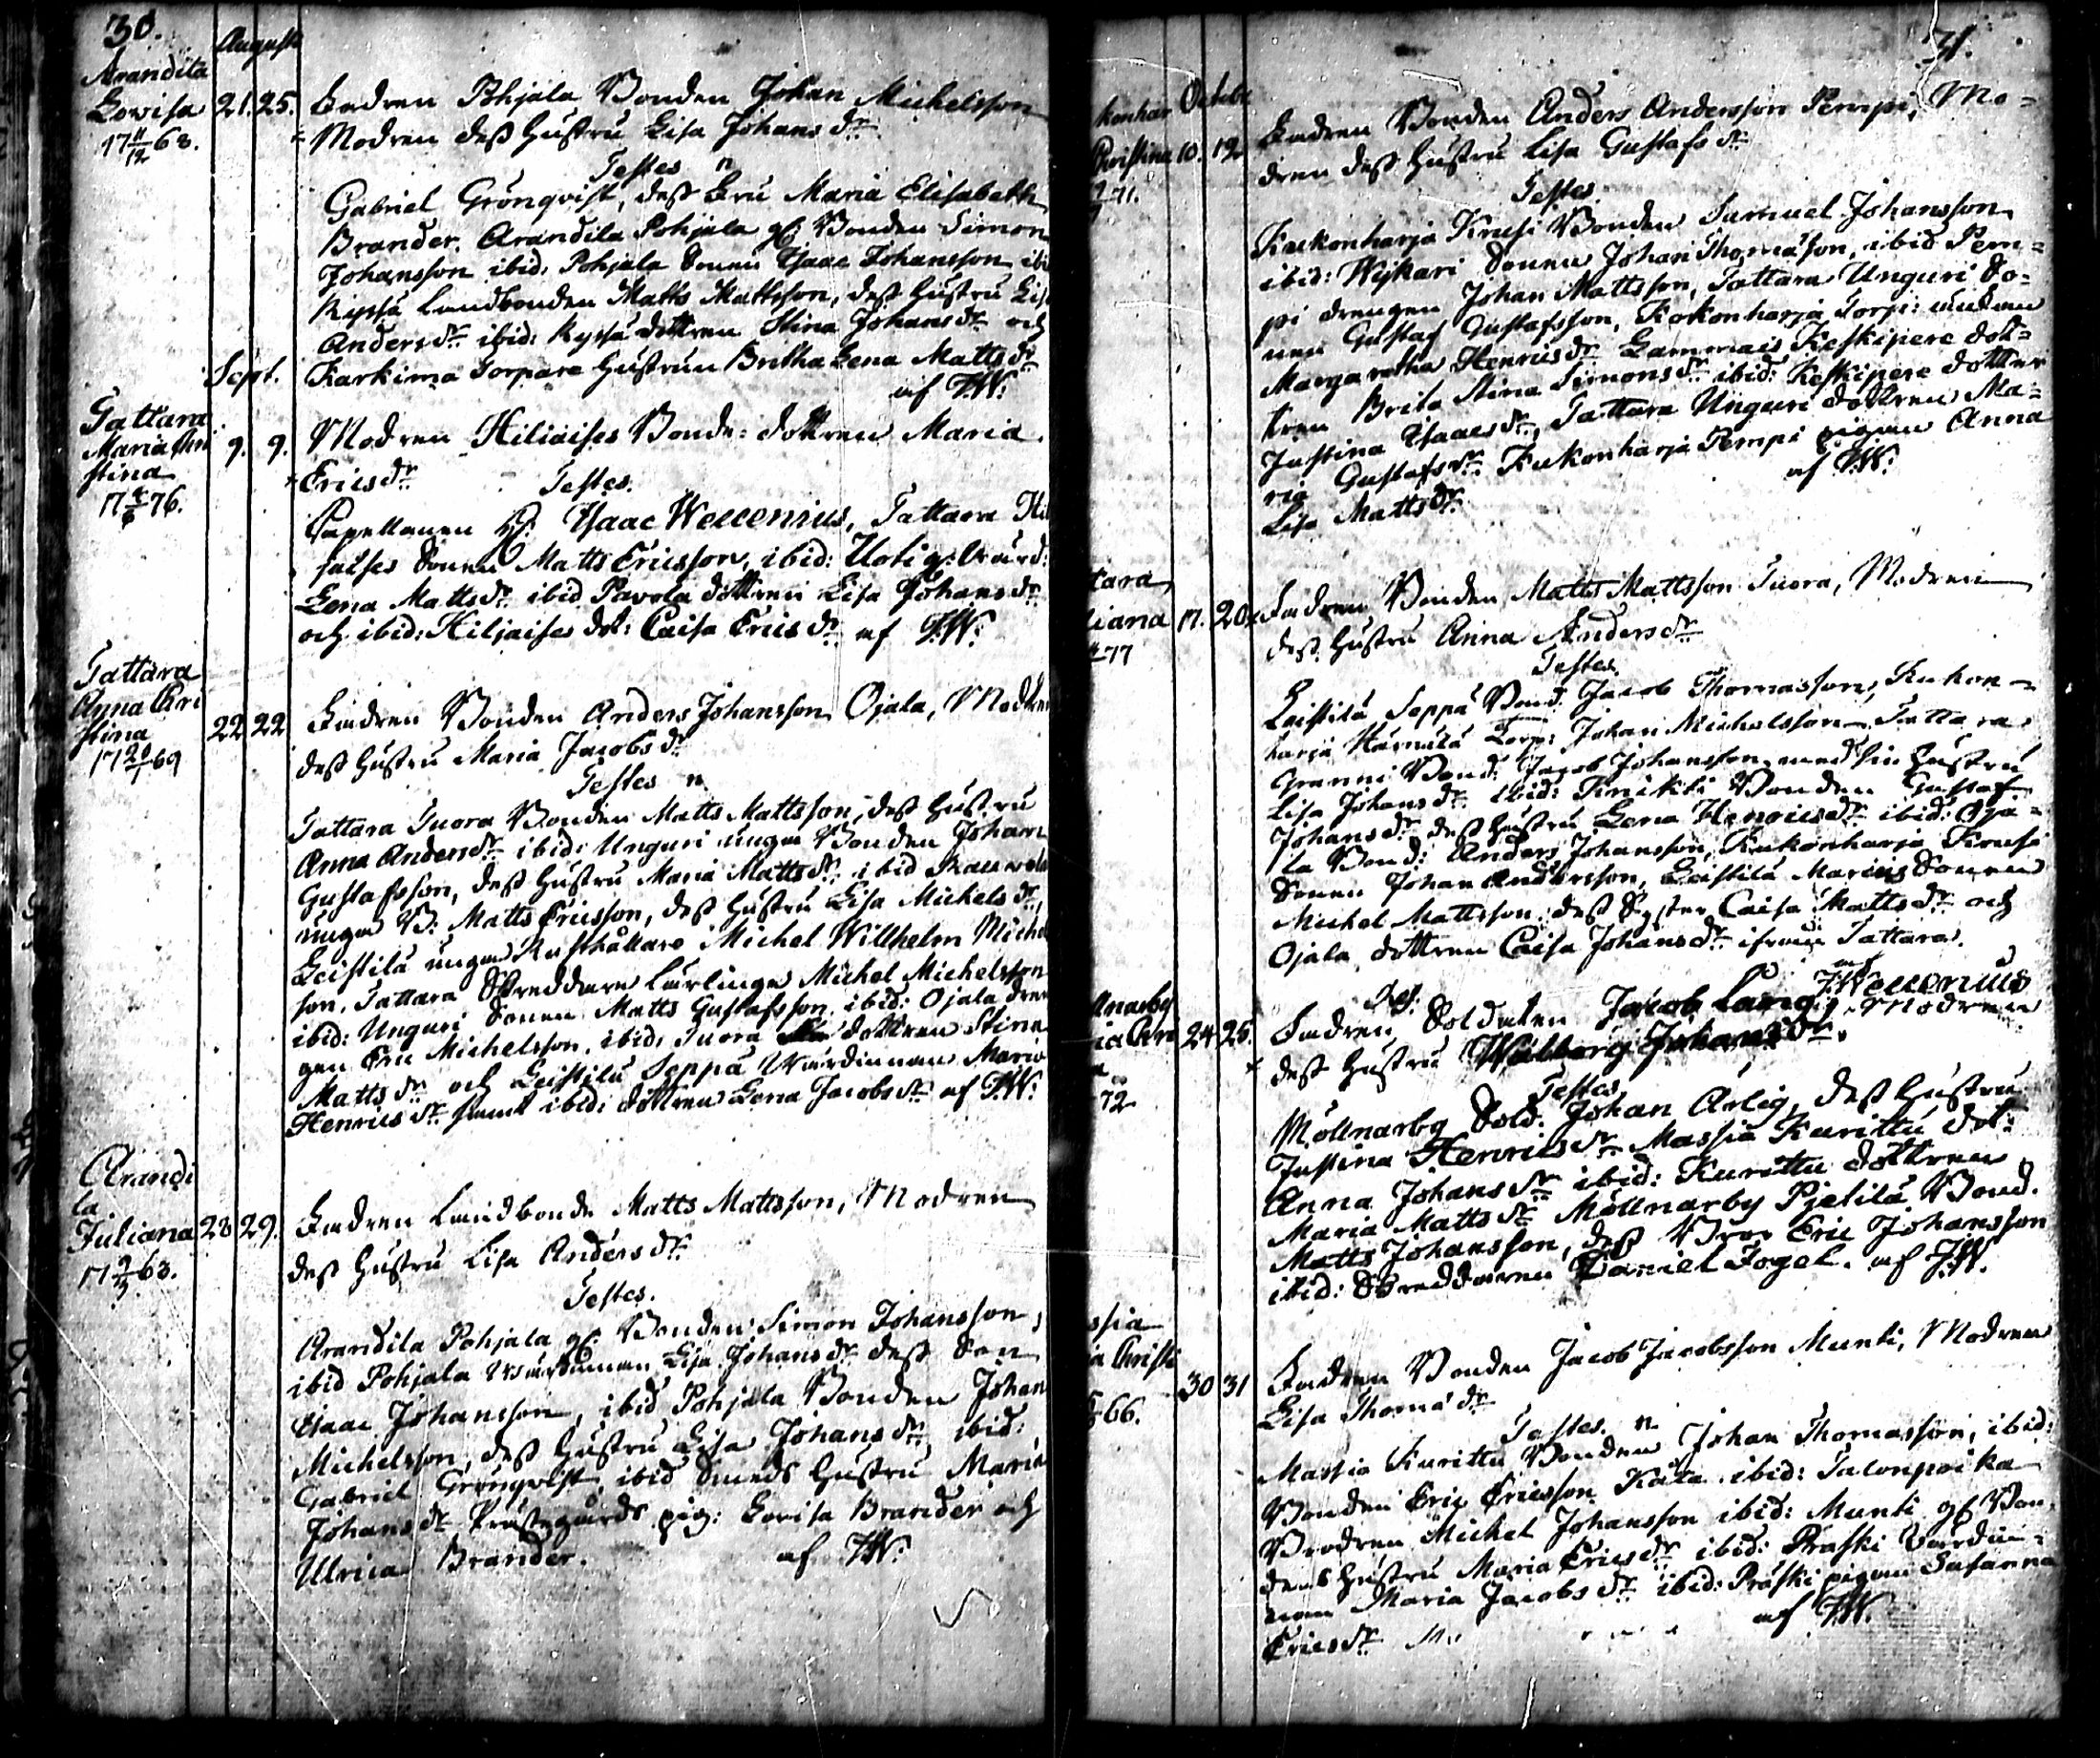 30.
Augusti
Arandila
Lovisa 21. 25. Fadren Pohjala Bonden Johan Michelsson
17 11/12 63. Modren deß hustru Lisa Johans dr
Testes
Gabriel Grönqvist, deß Fru Maria Elisabeth
Brander. Arandila Pohjala gl. Bonden Simon
Johansson ibid: Pohjala Sonen Isaac Johansson ibi
Kyssä Landbonden Matts Mattsson, deß hustru Lis
Anders dr ibid: Kyssä dottren Stina Johans dr och
Karkima Torpare hustrun Britha Lena Matts dr
af J.W.
Sept.
Tattara
Maria Chri 9. 9. Modren Hiliaises Bonde-dottren Maria
stina Erics dr
17 4/6 76. Testes.
Capellanen H. Isaac Wecenius, Tattara Hil
jaises Sonen Matts Ericsson, ibid: Uoti
Lena Matts dr ibid Pavola dottren Lisa Johans dr
och ibid: Hiljaises dot: Caisa Erics dr af J.W.
Tattara
Anna Chri
stina 22 22 Fadren Bonden Anders Johansson Ojala, Modren
17 20/1 69 deß hustru Maria Jacobs dr
Testes
Tattara Tuora Bonden Matts Mattsson, deß hustru
Anna Anders dr ibid: Unguri unga Bonden Johan
Gustafsson, deß hustru Maria Matts dr ibid
unga B: Matts Ericsson, deß hustru Lisa Michels dr,
Leistilä unga Rusthållare Michel Willhelm Michels
son, Tattara Skreddare Lärlinge Michel Michelsson
ibid: Unguri Sonen Matts Gustafsson, ibid: Ojala dren
gen Eric Michelsson, ibid: Tuora dottren Stina
Matts dr och Leistilä Seppä Värdinnan Maria
Henrics dr samt ibid: dottren Lena Jacobs dr af J.W.
Arandi
la
Juliana 28 29. Fadren Landbonde Matts Mattsson, Modren
17 9/3 63. deß hustru Lisa Anders dr
Testes.
Arandila Pohjala gl. Bonden Simon Johansson,
ibid Pohjala Värdinnan Lisa Johans dr deß Son
Isaac Johansson, ibid Pohjala Bonden Johan
Michelsson, deß hustru Lisa Johans dr, ibid:
Gabriel Grönqvist, ibid Smeds hustru Maria
Johans dr Prästegårds pig: Lovisa Brander och
Ulrica Brander. af J.W.
31.
konhar Octobr
Christina 10. 12. Fadren Bonden Anders Andersson Pempi, Mo-
71. dren deß hustru Lisa Gustafs dr
Testes
Kukonharja Krusi Bonden Samuel Johansson
ibid: Wijkari Sonen Johan Thomasson, ibid Pem-
pi drengen Johan Mattsson, Tattara Unguri So-
nen Gustaf Gustafsson, Kokonharja Torp:
Margaretha Henrics dr Lammais Keskipere dot-
tren Brita Stina Simons dr ibid: Keskipere dotter
Justina Isaacs dr, Tattara Unguri dottren Ma-
ria Gustafs dr Kukonharja Pempi pigan Anna
Lisa Matts dr af J.W.
tara
liana 17. 20. Fadren Bonden Matts Mattsson Tuora, Modren
77 deß hustru Anna Anders dr
Testes
Leistilä Seppä Bond. Jacob Thomasson, Kukon-
harja Torp: Johan Michelsson Tattara
Granni Bond: Jacob Johansson med sin hustru
Lisa Johans dr ibid: Bonden Gustaf
Johans dr deß hustru Lena Henrics dr ibid: Oja-
la Bond: Anders Johansson, Kukonharja Krusi
Sonen Johan Andersson, Leistilä Sonen
Michel Mattsson, deß Syster Caisa Matts dr och
Ojala dottren Caisa Johans dr ifrån Tattara.
af J. Wecenius
llnarby
ia Chri 24 25. Fadren Soldaten Jacob Lång, Modren
72 deß hustru Walborg Johans dr.
Testes
Möllnarby Sold. Johan Arlig, deß hustru
Justina Henrics dr Massia Kurittu dot:
Anna Johans dr ibid: Kurittu dottren
Maria Matts dr Möllnarby Pjelilä Bond.
Matts Johansson, deß Bror Eric Johansson
ibid: Skreddaren Daniel Fogel. af J.W.
ssia
ia Christi 30 31 Fadren Bonden Jacob Jacobsson Munti, Modren
66. Lisa Thoma dr
Testes.
Massia Kurittu Bonden Johan Thomasson, ibid:
Bonden Eric Ericsson Kata ibid: Talonpoika
Brodren Michel Johansson ibid: Munti gl Bon-
dens hustru Maria Erics dr ibid: Präski Värdin-
nan Maria Jacobs dr ibid: Präski pigan Susanna
Erics dr af J.W.